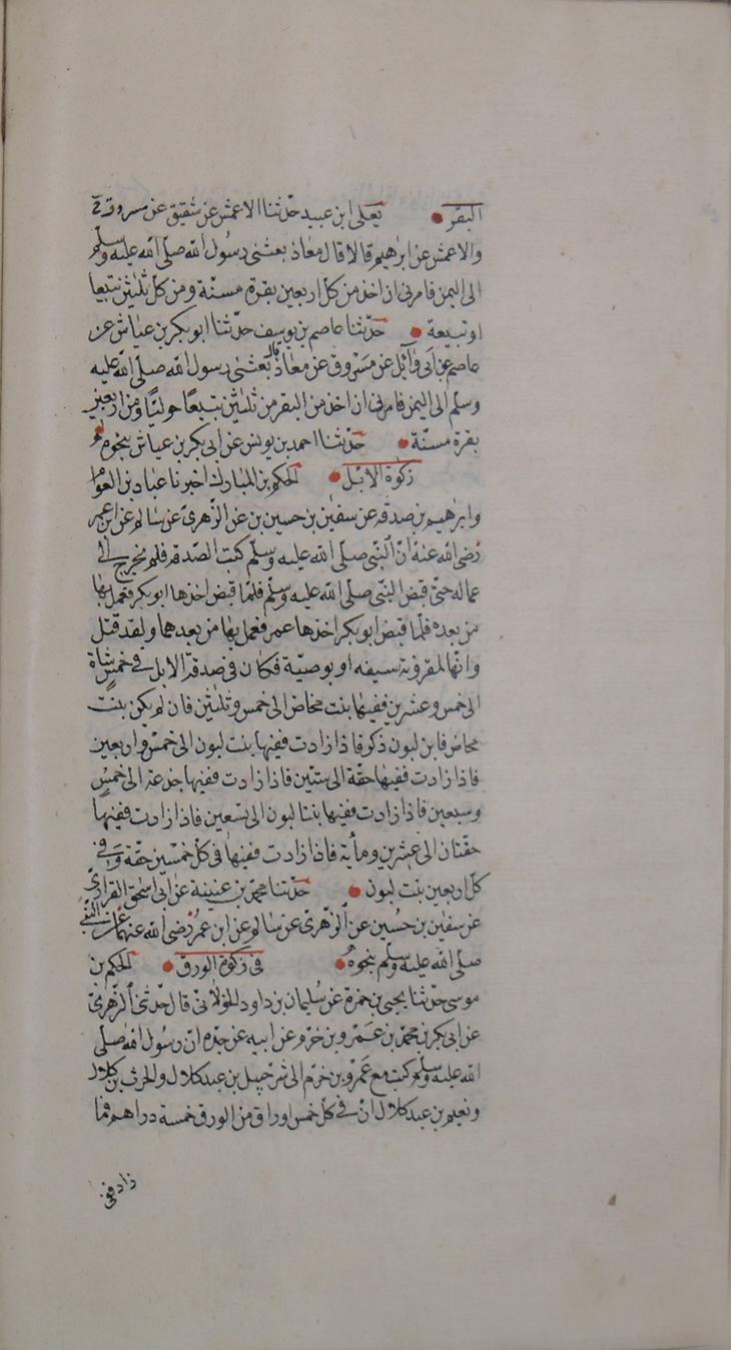 البقر • يعلى ابن عبيد حدّثنا الاعمش عن شقيق عن مسروق ح
والاعمش عن ابرهيم قالا قال معاذ بعثنى رسول الله صلّى الله عليه وسلّم
الى اليمن فامرنى ان اخذ من كلّ اربعين بقرة مسنّة ومن كلّ ثلثين تبيعا
او تبيعة • حدّثنا عاصم بن يوسف حدّثنا ابو بكر بن عياش عن
عاصم عن ابى وآئل عن مسروق عن معاذ قال بعثنى رسول الله صلّى الله عليه
وسلم الى اليمن فامرنى ان اخذ من البقر من ثلثين تبيعًا حوليًّا ومن اربعين
بقرة مسنّة • حدّثنا احمد بن يونس عن ابى بكر بن عياش بنحوه
زكوة الابل • الحكم بن المبارك اخبرنا عباد بن العوام
وابرهيم بن صدقه عن سفين بن حسين بن عن الزّهرى عن سالم عن ابن عمر
رضى الله عنه انّ النّبى صلّى الله عليه وسلّم كتب الصّدقه فلم تخرج الى
عماله حتّى قبض النبى صلّى الله عليه وسلّم فلمّا قبض اخذها ابو بكر فعمل بها
من بعده فلمّا قبض ابو بكر اخذها عمر فعمل بها من بعدهما ولقد قتل
وانّها لمقرونة بسيفه او بوصيّة فكان فى صدقة الابل فى خمس شاة
الى خمس وعشرين ففيها بنت مخاض الى خمس وثلثين فان لم يكن بنت
مخاض فابن لبون ذكر فاذا زادت ففيها بنت لبون الى خمس واربعين
فاذا زادت ففيها حقّة الى ستّين فاذا زادت ففيها جذعة الى خمس
وسبعين فاذا زادت ففيها بنتا لبون الى تسعين فاذا زادت ففيها
حقّتان الى عشرين ومأية فاذا زادت ففيها فى كلّ خمسين حقّة وفى
كلّ اربعين بنت لبون • حدّثنا محمّد بن عيينة عن ابى اسحق الفزارىّ
عن سفين بن حُسين عن الزّهرى عن سالم عن ابن عمر رضى الله عنهما عن النبى
صلى الله عليه وسلم بنحوه • فى زكوة الورق • الحكم بن
موسى حدّثنا يحيى بن حمزة عن سُليمان بن داود الخولانى قال حدثنى الزّهرىّ
عن ابى بكر بن محمّد بن عمرو بن حزم عن ابيه عن جدّه انّ رسول الله صلى
الله عليه وسلّم كتب مع عمرو بن حزم الى شرحبيل بن عبد كلال والحرث بن كلال
ونعيم بن عبد كلال انّ فى كلّ خمس اوراق من الورق خمسة دراهم فما
زاد ففى